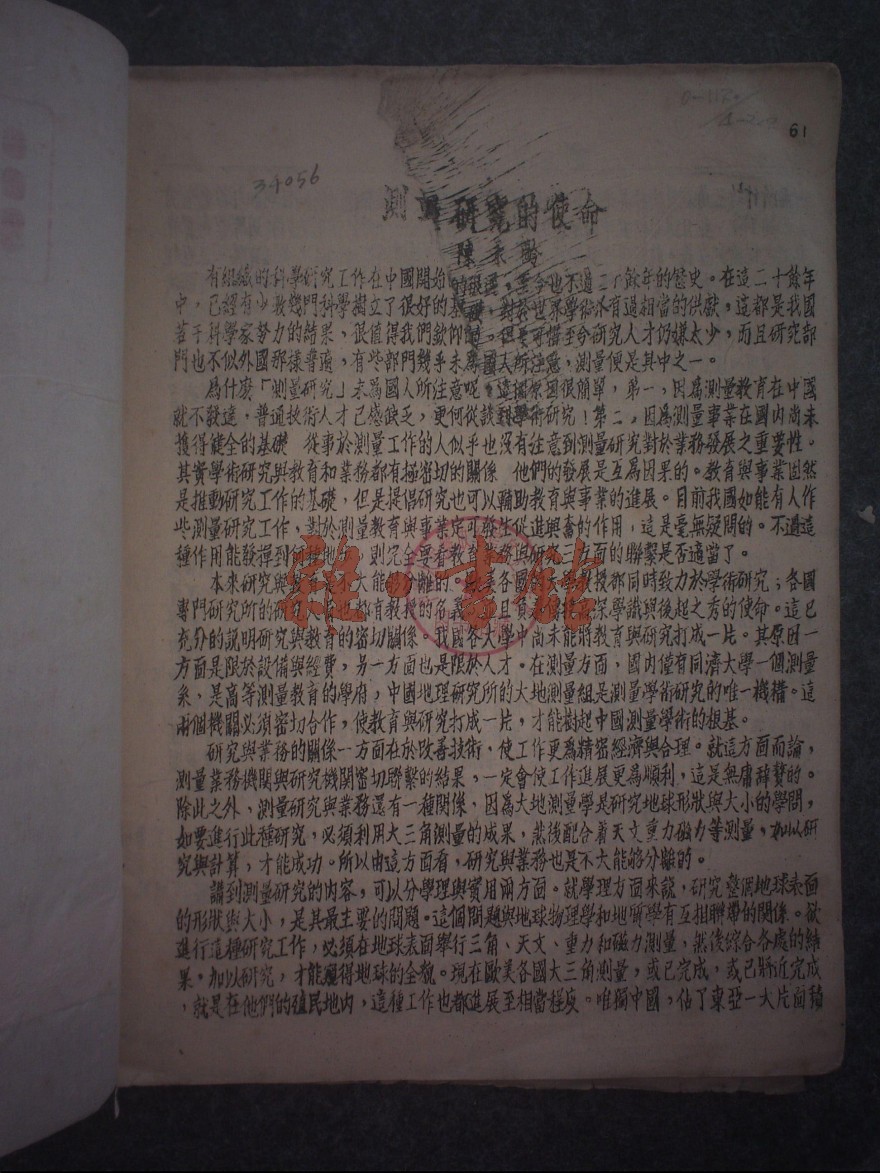 61
34056
測量研究的使命
陳永齡
有組織的科學研究工作在中國開始的很遲，至今也不過二十餘年的歷史。在這二十餘年
中，已經有少數幾門科學樹立了很好的基礎，對於世界學術亦有過相當的供獻，這都是我國
若干科學家努力的結果，很值得我們欽仰的。但是可惜至今研究人才仍嫌太少，而且研究部
門也不似外國那樣普遍，有些部門幾乎未為國人所注意，測量便是其中之一。
為什麼「測量研究」未為國人所注意呢，這個原因很簡單，第一，因為測量教育在中國
就不發達，普通技術人才已感缺乏，更何從談到學術研究！第二，因為測量事業在國內尚未
獲得健全的基礎 從事於測量工作的人似乎也沒有注意到測量研究對於業務發展之重要性。
其實學術研究與教育和業務都有極密切的關係 他們的發展是互為因果的。教育與事業固然
是推動研究工作的基礎，但是提倡研究也可以輔助教育與事業的進展。目前我國如能有人作
些測量研究工作，對於測量教育與事業定可發生促進與奮的作用，這是毫無疑問的。不過這
種作用能發揮到何種地步，則完全要看教育業務與研究三方面的聯繫是否適當了。
本來研究與教育是不大能夠分離的 歐美各國的大學教授都同時致力於學術研究；各國
專門研究所的研究人員也都有教授的名義，並且負起傳授高深學識與後起之秀的使命。這已
充分的說明研究與教育的密切關係。我國各大學中尚未能將教育與研究打成一片。其原因一
方面是限於設備與經費，另一方面也是限於人才。在測量方面，國內僅有同濟大學一個測量
系，是高等測量教育的學府，中國地理研究所的大地測量組是測量學術研究的唯一機構。這
兩個機關必須密切合作，使教育與研究打成一片，才能樹起中國測量學術的根基。
研究與業務的關係一方面在於改善技術，使工作更為精密經濟與合理。就這方面而論，
測量業務機關與研究機關密切聯繫的結果，一定會使工作進展更為順利，這是無庸辭贅的。
除此之外、測量研究與業務還有一種關係、因為大地測量學是研究地球形狀與大小的學問，
如要進行此種研究，必須利用大三角測量的成果，然後配合着天文重力磁力等測量，加以研
究與計算，才能成功。所以由這方面看，研究與業務也是不大能夠分離的。
講到測量研究的內容，可以分學理與實用兩方面。就學理方面來說，研究整個地球表面
的形狀與大小，是其最主要的問題。這個問題與地球物理學和地質學有互相聯帶的關係。欲
進行這種研究工作，必須在地球表面舉行三角、天文、重力和磁力測量，然後綜合各處的結
果，加以研究，才能獲得地球的全貌。現在歐美各國大三角測量，或已完成，或已將近完成
，就是在他們的殖民地內，這種工作也都進展至相當程度。唯獨中國，佔了東亞一大片面積
雜·書館